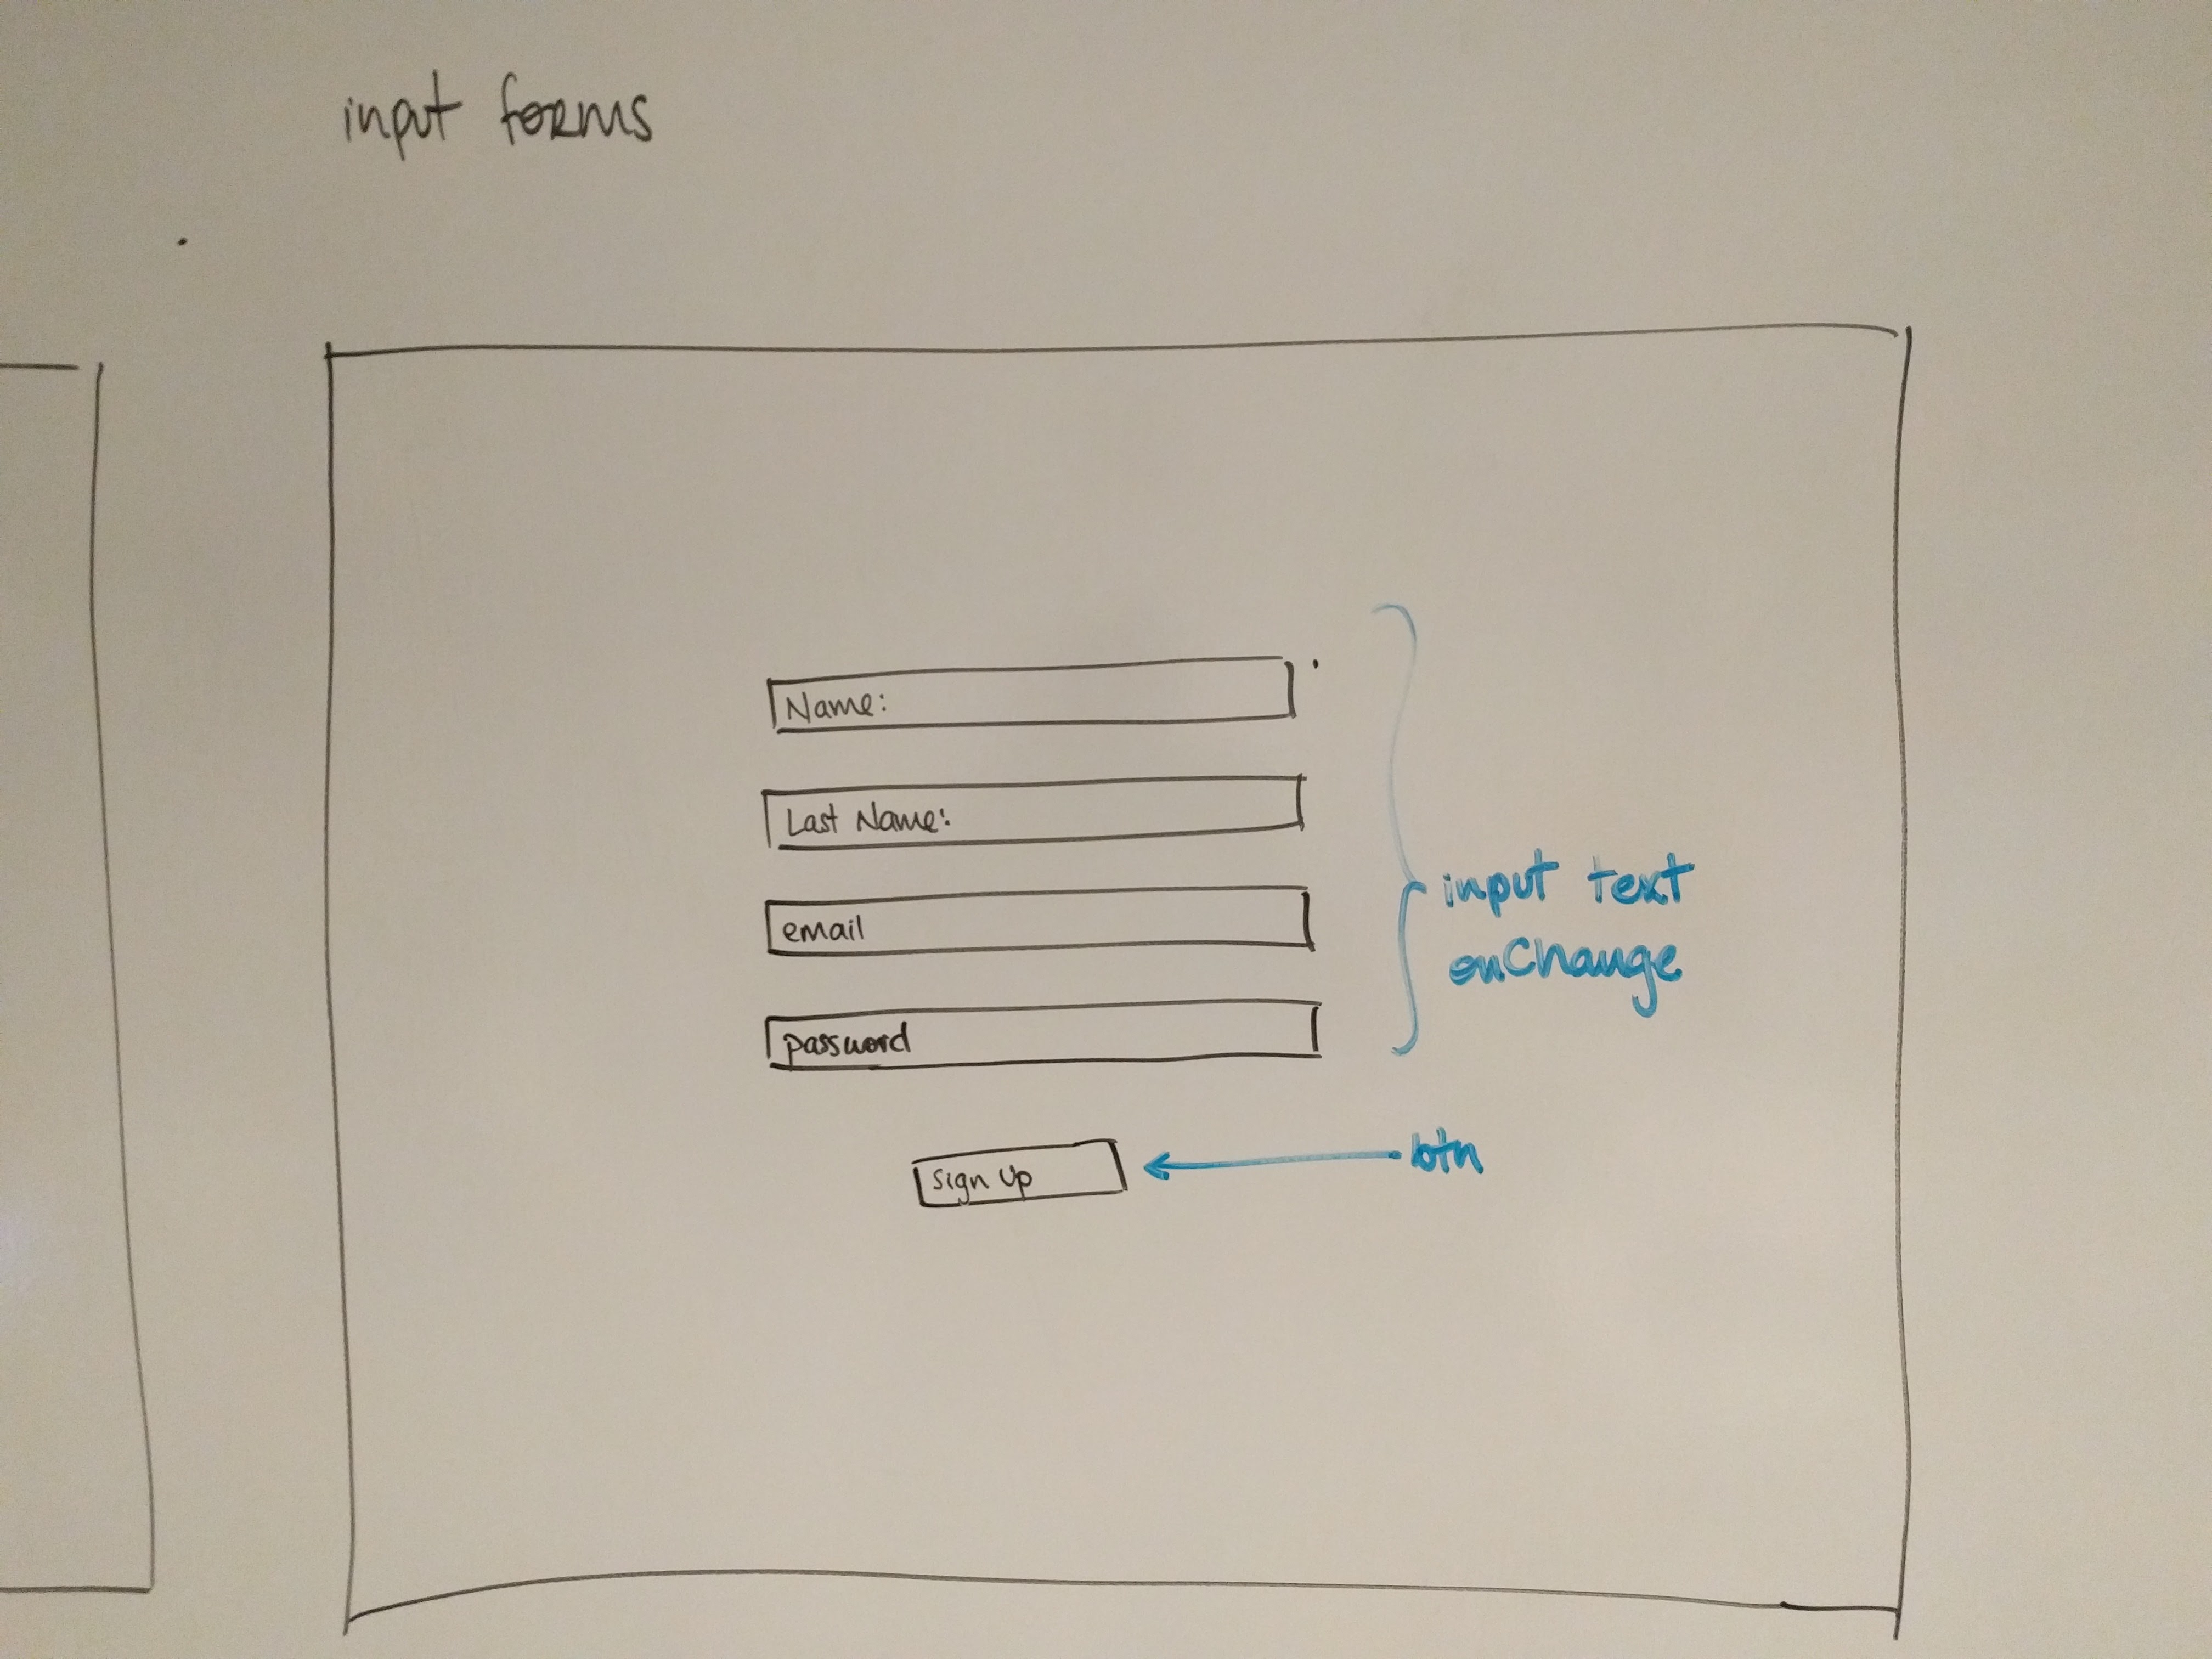 input forms
Name:
Last Name:
email
password
input text
onChange
sign up
btn